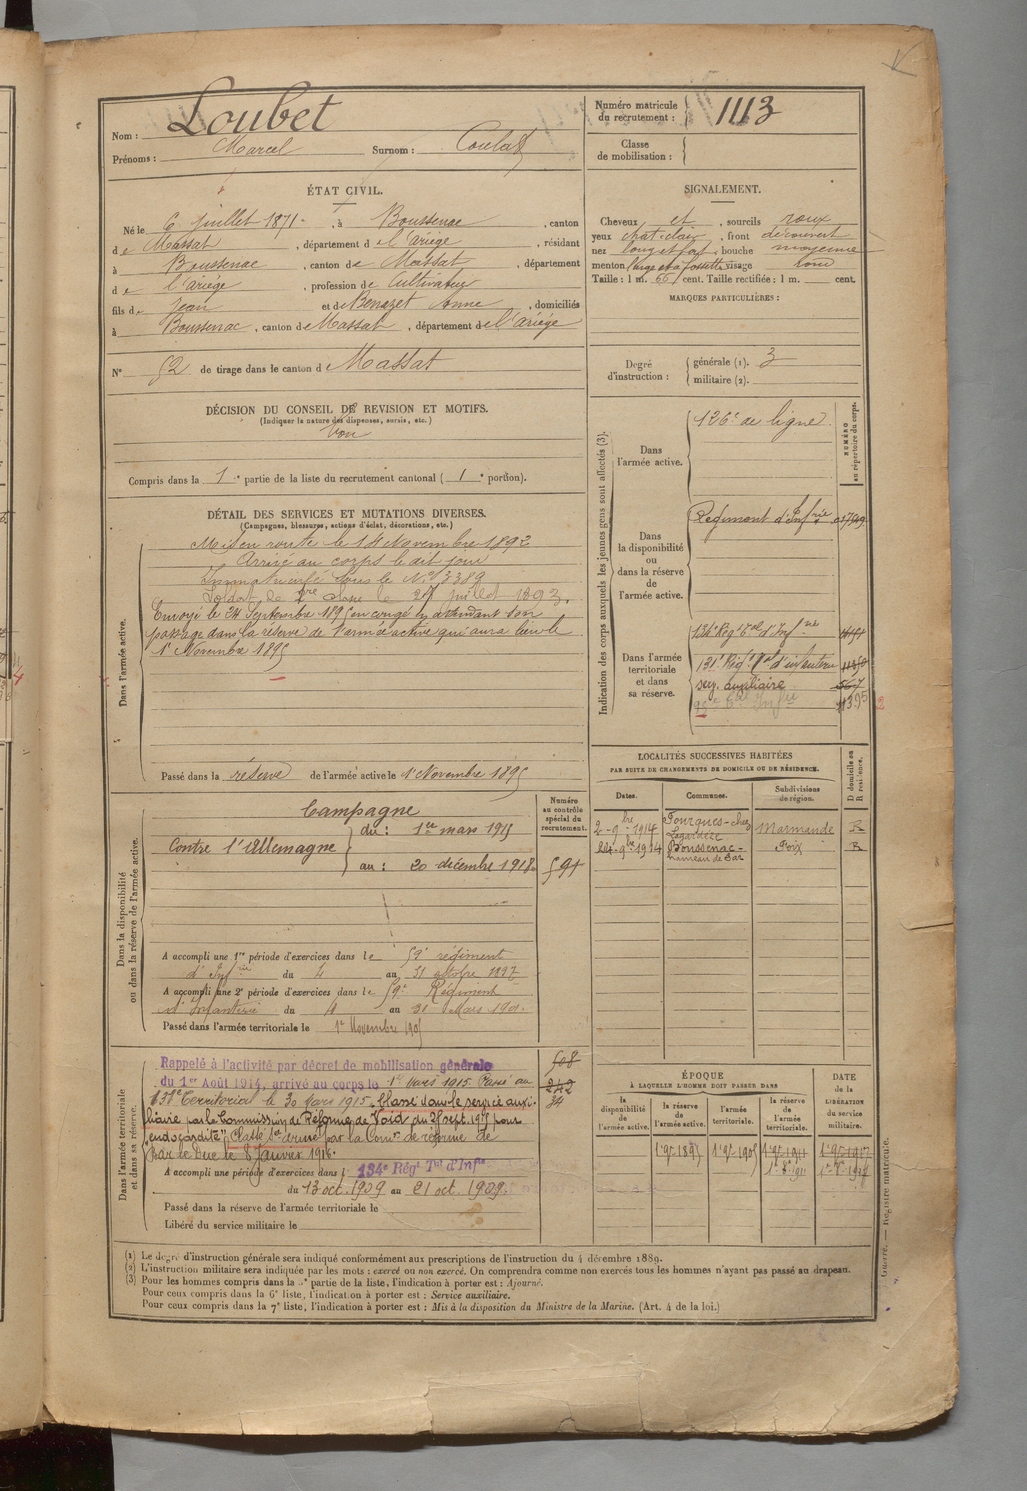 Nom : Loubet
Prénoms : Marcel Surnom :
Numéro matricule du recrutement : 1113
Classe de mobilisation :
ÉTAT CIVIL.
Né le 6 juillet 1871, à Boussenac, canton
de Massat, département de l'ariège, résidant
à Boussenac, canton de Massat, département
de l'ariège, profession de Cultivateur
fils de Jean et de Benazet Anne, domiciliés
à Boussenac, canton de Massat, département de l'ariège
N° 52 de tirage dans le canton de Massat
DÉCISION DU CONSEIL DE REVISION ET MOTIFS.
(Indiquer la nature des dispenses, sursis, etc.)
Bon
Compris dans la 1e partie de la liste du recrutement cantonal (1e portion).
SIGNALEMENT.
Cheveux et, sourcils roux
yeux chat. clair, front découvert
nez long et fort, bouche moyenne
menton large et à fossette visage rond
Taille : 1 m. 66 cent. Taille rectifiée : 1 m. cent.
MARQUES PARTICULIÈRES :
Degré d'instruction : générale (1). 3
militaire (2).
DÉTAIL DES SERVICES ET MUTATIONS DIVERSES.
(Campagnes, blessures, actions d'éclat, décorations, etc.)
Dans l'armée active.
Mis en route le 14 Novembre 1892
Arrivé au corps le dit jour
Immatriculé sous le N° 3389
Soldat de 1re classe le 27 juillet 1893.
Envoyé le 24 Septembre 1895 en congé en attendant son
passage dans la réserve de l'armée active qui aura lieu le
1er Novembre 1895
Passé dans la réserve de l'armée active le 1er Novembre 1895
Indication des corps auxquels les jeunes gens sont affectés (3).
NUMÉRO au répertoire du corps.
Dans l'armée active.
126e de ligne
Dans la disponibilité ou dans la réserve de l'armée active.
Régiment d'Infrie
Dans l'armée territoriale et dans sa réserve.
134e Régt Tal d'Infrie
131e Régt Tal d'infanterie
sez. auxiliaire 567
Dans la disponibilité ou dans la réserve de l'armée active.
Numéro au contrôle spécial du recrutement.
Campagne
Contre l'Allemagne
du : 1er mars 1915
au : 20 décembre 1918.
591
A accompli une 1re période d'exercices dans le 59e régiment
d'Infrie du 4 au 31 octobre 1897
A accompli une 2e période d'exercices dans le 59e Régiment
d'Infanterie du 4 au 31 Mars 1901.
Passé dans l'armée territoriale le 1er Novembre 1905
LOCALITÉS SUCCESSIVES HABITÉES
PAR SUITE DE CHANGEMENTS DE DOMICILE OU DE RÉSIDENCE.
Dates. Communes. Subdivisions de région. D domicile ou R résidence.
2-9bre-1914 Fourques-chez Lagardère Marmande R
24-9bre 1914 Boussenac-hameau de Bar Foix R
Dans l'armée territoriale et dans sa réserve.
Rappelé à l'activité par décret de mobilisation générale
du 1er Août 1914, arrivé au corps le 1er Mars 1915. Passé au
131e Territorial le 30 Mars 1915. Classé dans le service auxi-
liaire par le Commission de Réforme de Void du 21 sept. 1915 pour
"endocardite". Classé sce armé par la Comon de réforme de
Bar le Duc le 8 Janvier 1916.
508
242
34
A accompli une période d'exercices dans l 134e Régt Tal d'Infie
du 13 oct. 1909 au 21 oct. 1909.
Passé dans la réserve de l'armée territoriale le
Libéré du service militaire le
ÉPOQUE
À LAQUELLE L'HOMME DOIT PASSER DANS
DATE de la LIBÉRATION du service militaire.
la disponibilité de l'armée active.
la réserve de l'armée active.
l'armée territoriale.
la réserve de l'armée territoriale.
1er 9bre 1895 1er 9bre 1905 1er 9bre 1911 1er 9bre 1917
(1) Le degré d'instruction générale sera indiqué conformément aux prescriptions de l'instruction du 4 décembre 1889.
(2) L'instruction militaire sera indiquée par les mots : exercé ou non exercé. On comprendra comme non exercés tous les hommes n'ayant pas passé au drapeau.
(3) Pour les hommes compris dans la partie de la liste, l'indication à porter est : Ajourné.
Pour ceux compris dans la 6e liste, l'indication à porter est : Service auxiliaire.
Pour ceux compris dans la 7e liste, l'indication à porter est : Mis à la disposition du Ministre de la Marine. (Art. 4 de la loi.)
Registre matricule.